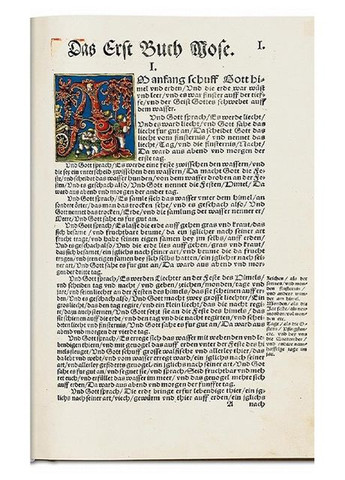 Das Erst Buch Mose.
I.
I.
AM anfang schuff Gott hi-
mel vnd erden / Vnd die erde war wüst
vnd leer / vnd es war finster auff der tief-
fe / vnd der Geist Gottes schwebet auff
dem wasser.
Vnd Gott sprach / Es werde liecht /
Vnd es ward liecht / vnd Gott sahe das
liecht fur gut an / Da scheidet Gott das
liecht vom finsternis / vnd nennet das
liecht / Tag / vnd die finsternis / Nacht /
Da ward aus abend vnd morgen der
erste tag.
Vnd Gott sprach / Es werde eine feste zwisschen den wassern / vnd
die sey ein vnterscheid zwisschen den wassern / Da macht Gott die Fe-
ste / vnd scheidet das wasser hunden / von dem wasser droben an der Fe-
sten / Vnd es geschach also / Vnd Gott nennet die Festen / Himel / Da
ward aus abend vnd morgen der ander tag.
Vnd Gott sprach / Es samle sich das wasser vnter dem himel / an
sondere örter / das man das trocken sehe / vnd es geschach also / Vnd
Gott nennet das trocken / Erde / vnd die samlung der wasser nennet er /
Meere / Vnd Gott sahe es fur gut an.
Vnd Gott sprach / Es lasse die erde auff gehen gras vnd kraut / das
sich besame / vnd fruchtbare beume / da ein iglicher nach seiner art
frucht trage / vnd habe seinen eigen samen bey jm selbs / auff erden /
Vnd es geschach also / Vnd die erde lies auff gehen / gras vnd kraut /
das sich besamet / ein iglichs nach seiner art / vnd beume die da frucht
trugen / vnd jren eigen samen bey sich selbs hatten / ein iglicher nach
seiner art / Vnd Gott sahe es fur gut an / Da ward aus abend vnd mor-
gen der dritte tag.
Vnd Gott sprach / Es werden Liechter an der Feste des Himels /
vnd scheiden tag vnd nacht / vnd geben / zeichen / monden / tage vnd
jare / vnd seien liechter an der Feste des himels / das sie scheinen auff er-
den / Vnd es geschach also / Vnd Gott macht zwey grosse liechter / Ein
gros liecht / das den tag regire / vnd ein klein liecht / das die nacht regi-
re / dazu auch sternen / Vnd Gott setzt sie an die Feste des himels / das
sie schienen auff die erde / vnd den tag vnd die nacht regirten / vnd schei-
deten liecht vnd finsternis / Vnd Gott sahe es fur gut an / Da ward aus
abend vnd morgen der vierde tag.
Vnd Gott sprach / Es errege sich das wasser mit webenden vnd le-
bendigen thiern / vnd mit geuogel das auff erden vnter der Feste des hi-
mels fleuget / Vnd Gott schuff grosse walfische vnd allerley thier / das
da lebt vnd webt / vnd vom wasser erregt ward / ein iglichs nach seiner
art / vnd allerley gefidderts geuogel / ein iglichs nach seiner art / Vnd Got
sahe es fur gut an / vnd segenet sie / vnd sprach / Seid fruchtbar vnd meh-
ret euch / vnd erfüllet das wasser im meer / vnd das geuogel mehre sich
auff erden / Da ward aus abend vnd morgen der funffte tag.
Vnd Gott sprach / Die erde bringe erfur lebendige thier / ein ig-
lichs nach seiner art / viech / gewürm vnd thier auff erden / ein iglichs
A nach